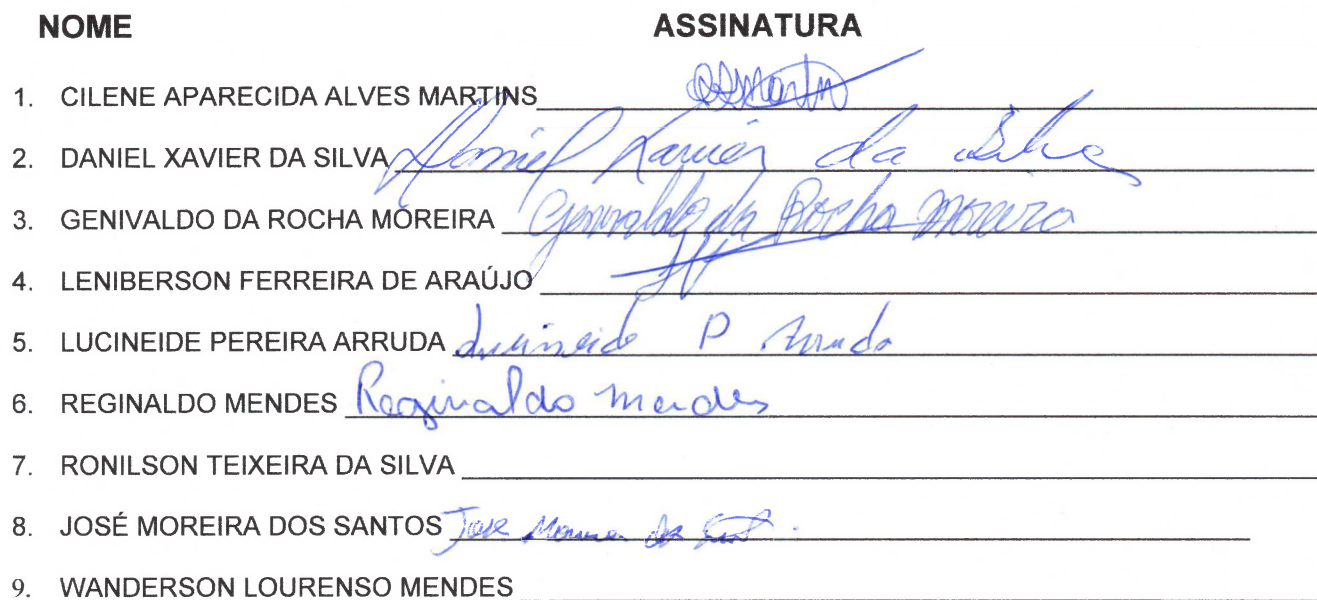 NOME ASSINATURA
1. CILENE APARECIDA ALVES MARTINS
2. DANIEL XAVIER DA SILVA Daniel Xavier da Silva
3. GENIVALDO DA ROCHA MOREIRA Genivaldo da Rocha Moreira
4. LENIBERSON FERREIRA DE ARAÚJO
5. LUCINEIDE PEREIRA ARRUDA Lucineide P Arruda
6. REGINALDO MENDES Reginaldo Mendes
7. RONILSON TEIXEIRA DA SILVA
8. JOSÉ MOREIRA DOS SANTOS Jose Moreira dos
9. WANDERSON LOURENSO MENDES